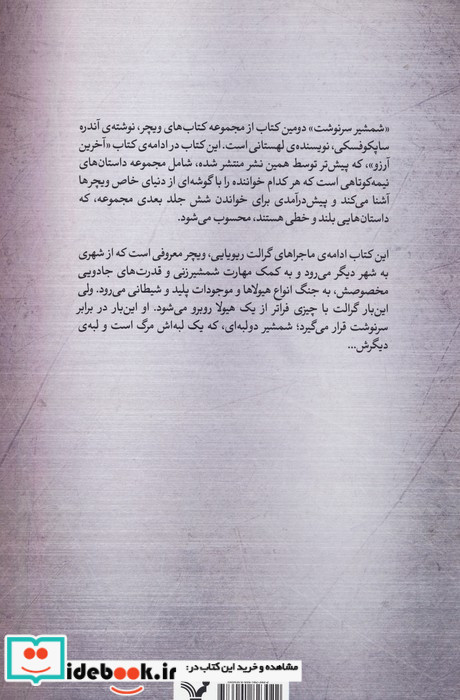 «شمشیر سرنوشت» دومین کتاب از مجموعه کتاب‌های ویچر، نوشته‌ی آندره
ساپکوفسکی، نویسنده‌ی لهستانی است. این کتاب در ادامه‌ی کتاب «آخرین
آرزو»، که پیش‌تر توسط همین نشر منتشر شده، شامل مجموعه داستان‌های
نیمه‌کوتاهی است که هر کدام خواننده را با گوشه‌ای از دنیای خاص ویچرها
آشنا می‌کند و پیش‌درآمدی برای خواندن شش جلد بعدی مجموعه، که
داستان‌هایی بلند و خطی هستند، محسوب می‌شود.
این کتاب ادامه‌ی ماجراهای گرالت ریویایی، ویچر معروفی است که از شهری
به شهر دیگر می‌رود و به کمک مهارت شمشیرزنی و قدرت‌های جادویی
مخصوصش، به جنگ انواع هیولاها و موجودات پلید و شیطانی می‌رود. ولی
این‌بار گرالت با چیزی فراتر از یک هیولا روبرو می‌شود. او این‌بار در برابر
سرنوشت قرار می‌گیرد؛ شمشیر دولبه‌ای، که یک لبه‌اش مرگ است و لبه‌ی
دیگرش...
مشاهده و خرید این کتاب در:
idebook.ir